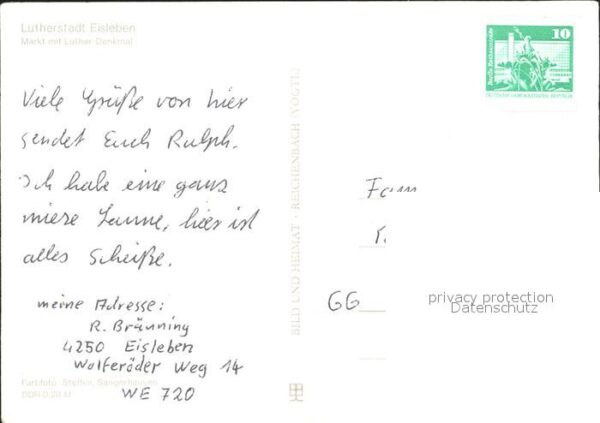 Lutherstadt Eisleben
Markt mit Luther-Denkmal
Viele Grüße von hier
sendet Euch Ralph.
Ich habe eine ganz
miese Laune, hier ist
alles Scheiße.
meine Adresse:
R. Bräunning
4250 Eisleben
Wolferöder Weg 14
WE 720
Farbfoto: Steffen, Sangerhausen
BILD UND HEIMAT · REICHENBACH (VOGTL)
10
DEUTSCHE DEMOKRATISCHE REPUBLIK
Fam
GG
privacy protection
Datenschutz